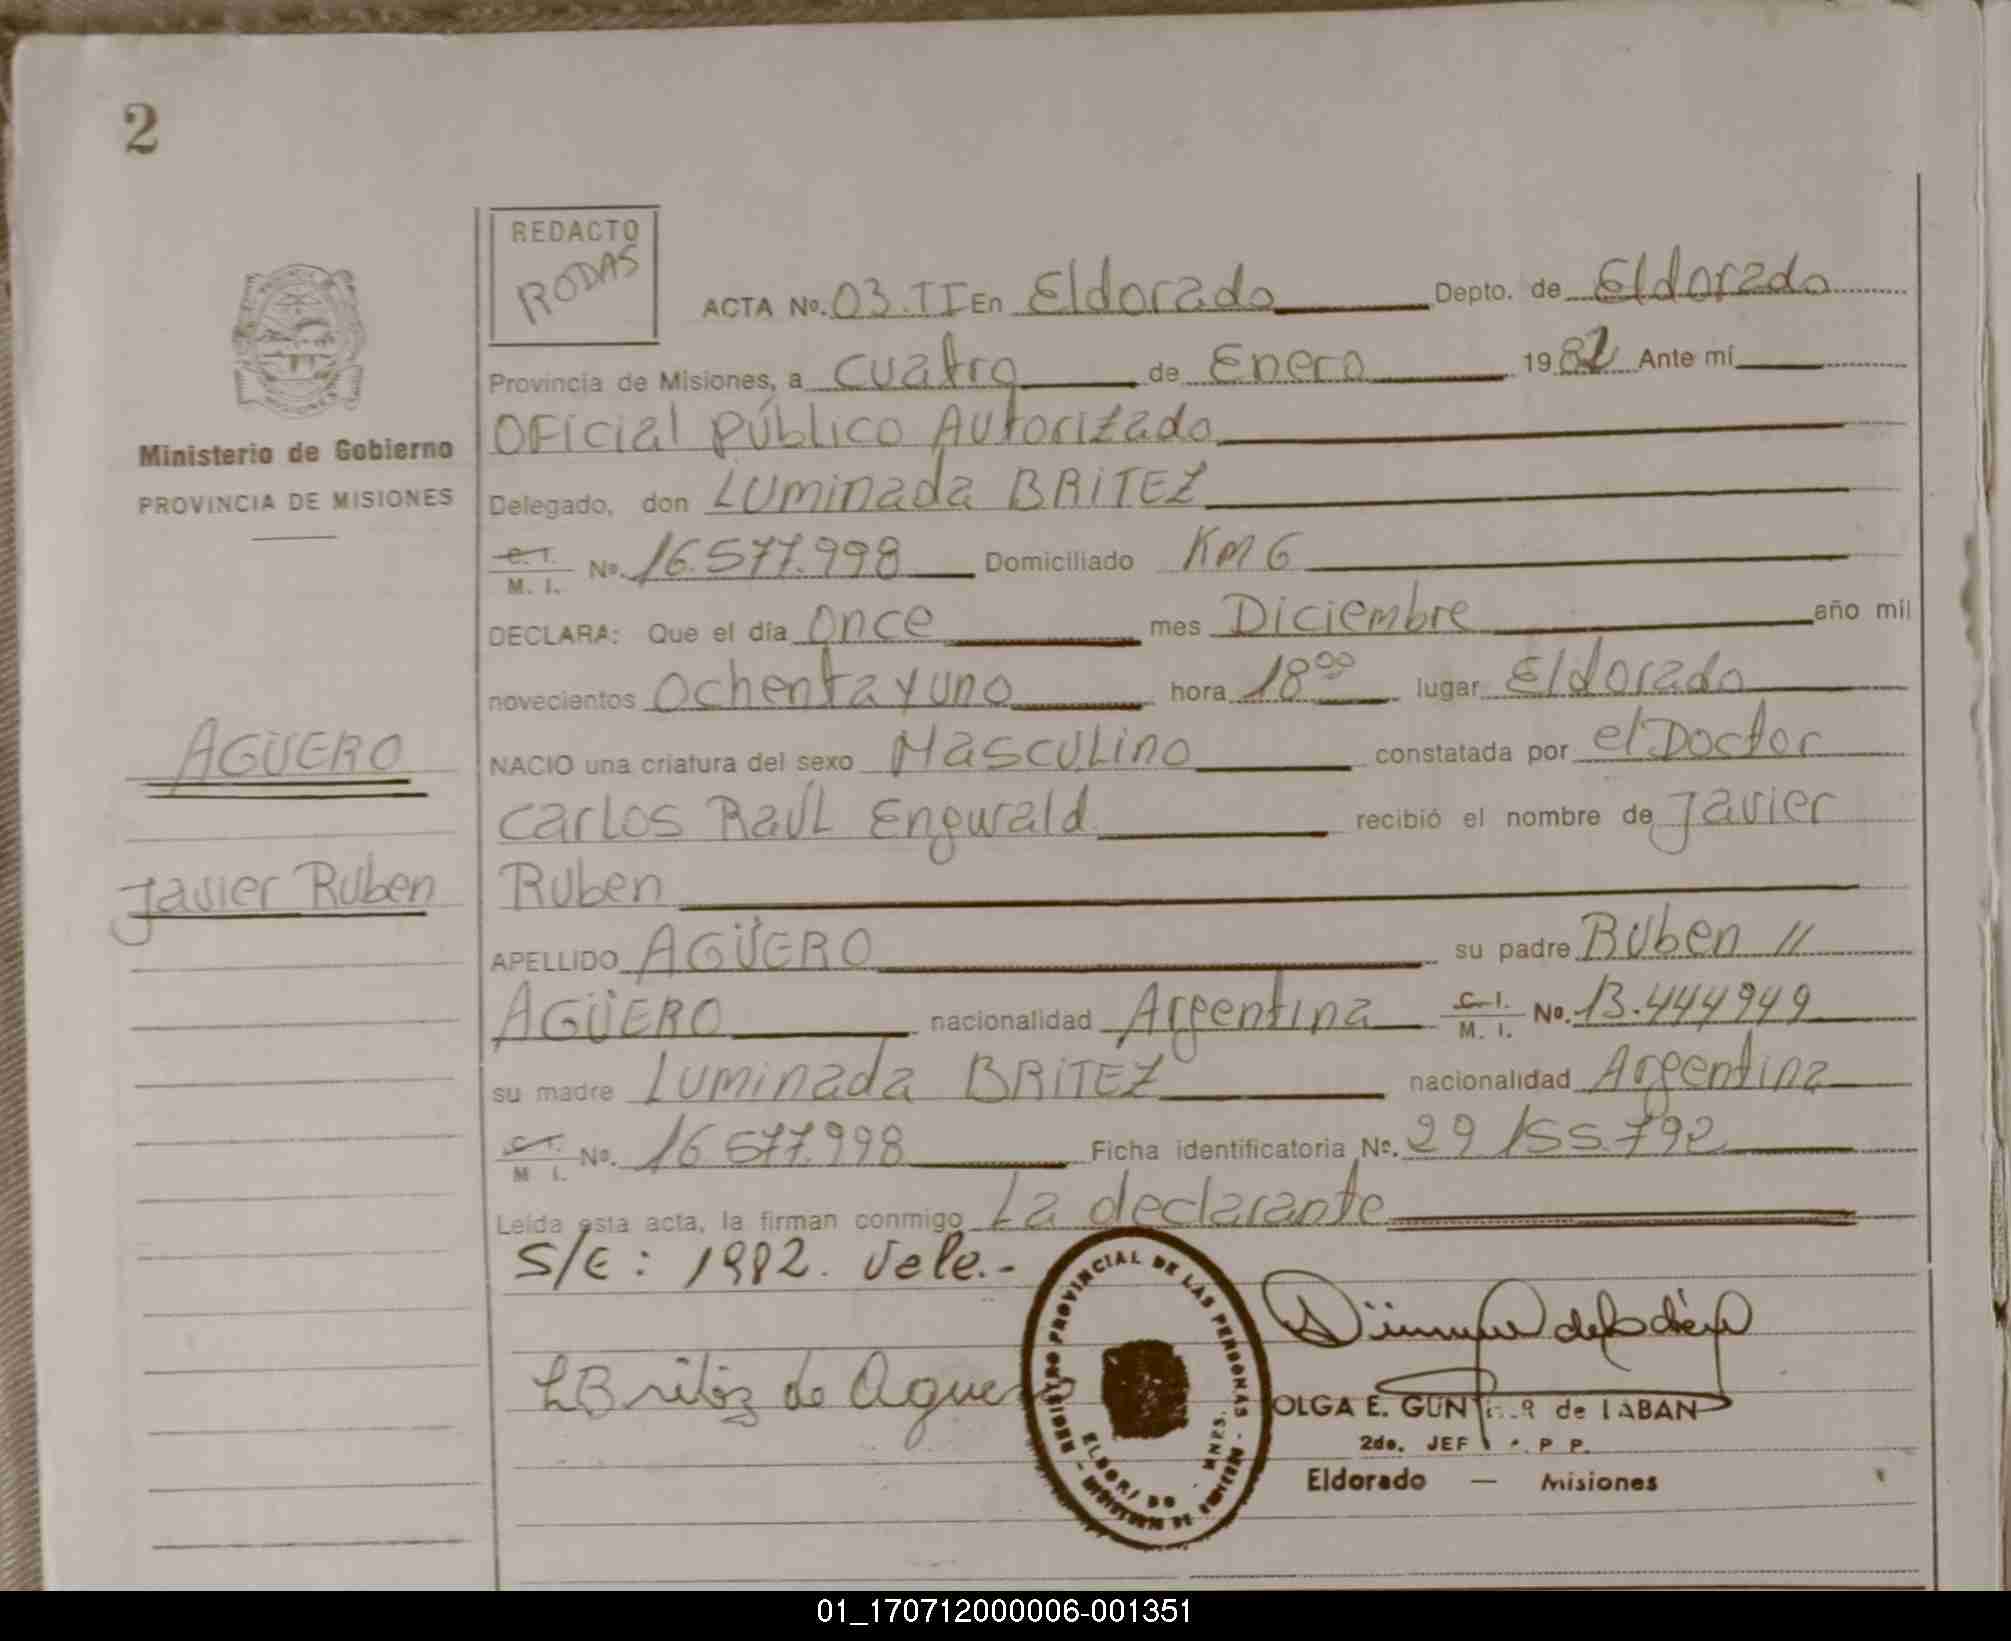 2
REDACTO
RODAS
ACTA Nº. 03.II En Eldorado Depto. de Eldorado
Provincia de Misiones, a cuatro de Enero 1982 Ante mí
Oficial Público Autorizado
Ministerio de Gobierno
PROVINCIA DE MISIONES
Delegado, don Luminada BRITEZ
C. I.
M. I. Nº. 16.577.998 Domiciliado Km 6
DECLARA: Que el día Once mes Diciembre año mil
novecientos Ochenta y uno hora 18°° lugar Eldorado
AGÜERO
NACIO una criatura del sexo Masculino constatada por el Doctor
Carlos Raúl Engwald recibió el nombre de Javier
Javier Ruben
Ruben
APELLIDO AGÜERO su padre Ruben //
AGÜERO nacionalidad Argentina C. I.
M. I. Nº. 13.444949
su madre Luminada BRITEZ nacionalidad Argentina
C. I.
M. I. Nº. 16 577.998 Ficha identificatoria Nº. 29/55.792
Leída esta acta, la firman conmigo La declarante
S/E: 1982. Vale.-
L Britez de Aguero
REGISTRO PROVINCIAL DE LAS PERSONAS - MINISTERIO DE GOBIERNO -
ELDORADO - MNES.
OLGA E. de LABAN
2do. JEF P P.
Eldorado — Misiones
01_170712000006-001351